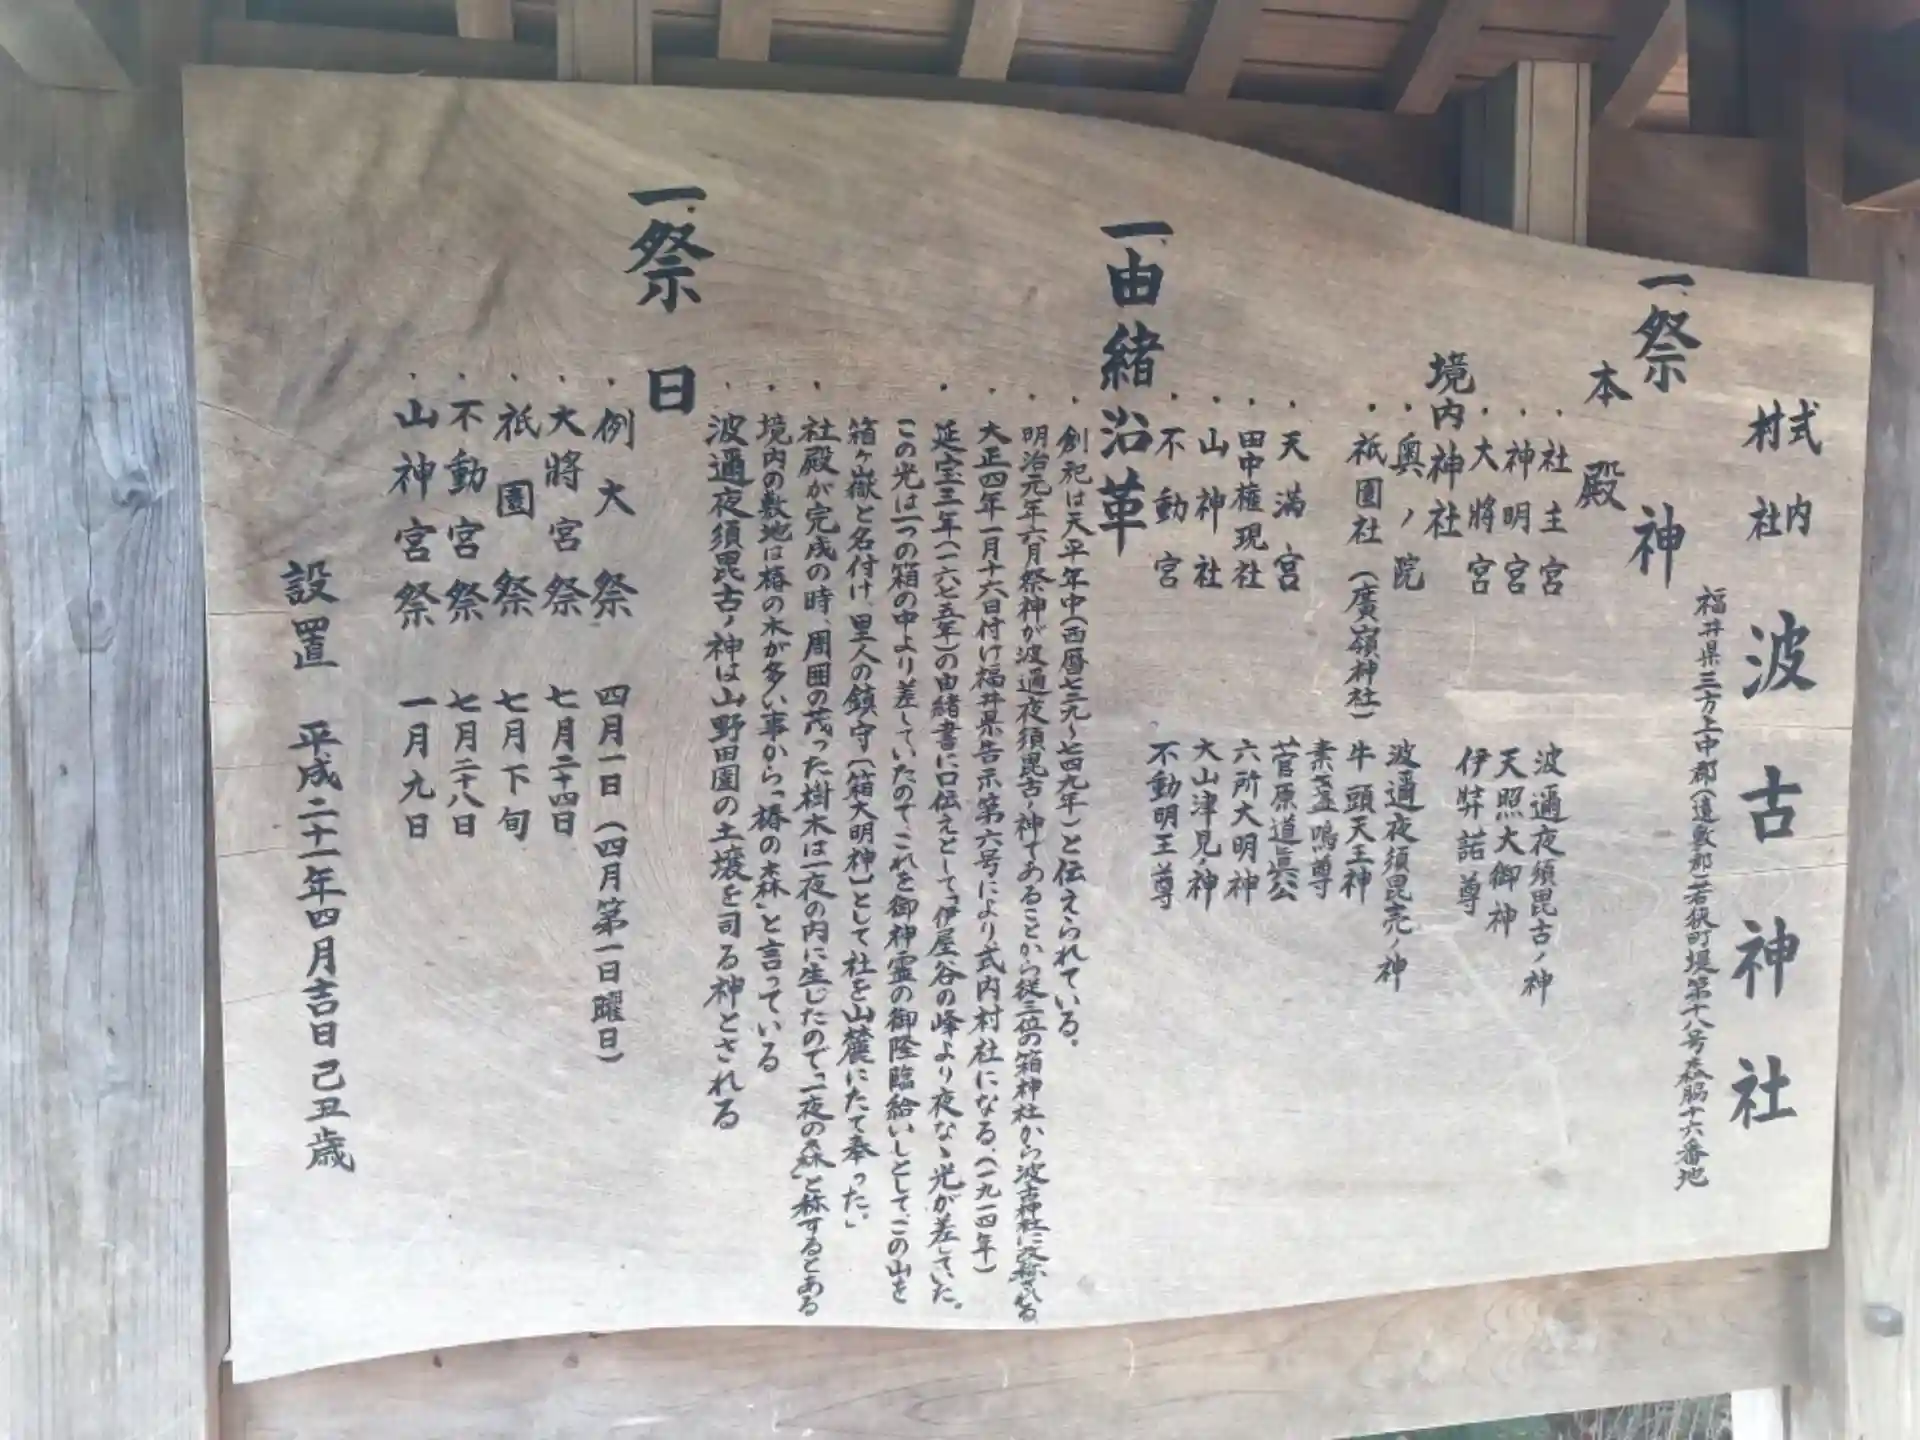 式内
村社
波古神社
福井県三方上中郡(遠敷郡)若狭町堤第十八号森脇十六番地
一、祭神
本殿
・社主宮 波邇夜須毘古ノ神
・神明宮 天照大御神
・大將宮 伊弉諾尊
境内神社
・奥ノ院 波邇夜須毘売ノ神
・祇園社(廣嶺神社) 牛頭天王神
素盞嗚尊
・天満宮 菅原道眞公
・田中権現社 六所大明神
・山神社 大山津見ノ神
・不動宮 不動明王尊
一、由緒沿革
・創祀は天平年中(西暦七二九~七四九年)と伝えられている。
・明治元年六月祭神が波邇夜須毘古ノ神であることから従三位の箱神社から波古神社に改称される
・大正四年一月十六日付け福井県告示第六号により式内村社になる。(一九一四年)
・延宝三年(一六七五年)の由緒書に口伝えとして「伊屋谷の峰より夜な〻光が差していた。
この光は一つの箱の中より差していたので、これを御神霊の御降臨給いしとして、この山を
箱ヶ嶽と名付け、里人の鎮守【箱大明神】として社を山麓にたて奉った。」
・社殿が完成の時、周囲の茂った樹木は一夜の内に生じたので「一夜の森」と称するとある
・境内の敷地は椿の木が多い事から「椿の森」と言っている
・波邇夜須毘古ノ神は山野田園の土壌を司る神とされる
一、祭日
・例大祭 四月一日(四月第一日曜日)
・大將宮祭 七月二十四日
・祇園祭 七月下旬
・不動宮祭 七月二十八日
・山神宮祭 一月九日
設置 平成二十一年四月吉日己丑歳